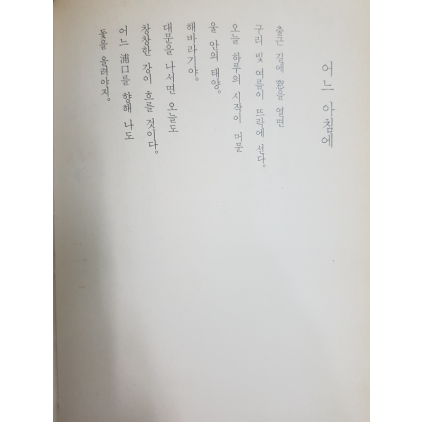 어느 아침에
출근 길에 窓을 열면
구리 빛 여름이 뜨락에 선다.
오늘 하루의 시작이 머문
울 안의 태양.
해바라기야.
대문을 나서면 오늘도
창창한 강이 흐를 것이다.
어느 浦口를 향해 나도
돛을 올려야지.